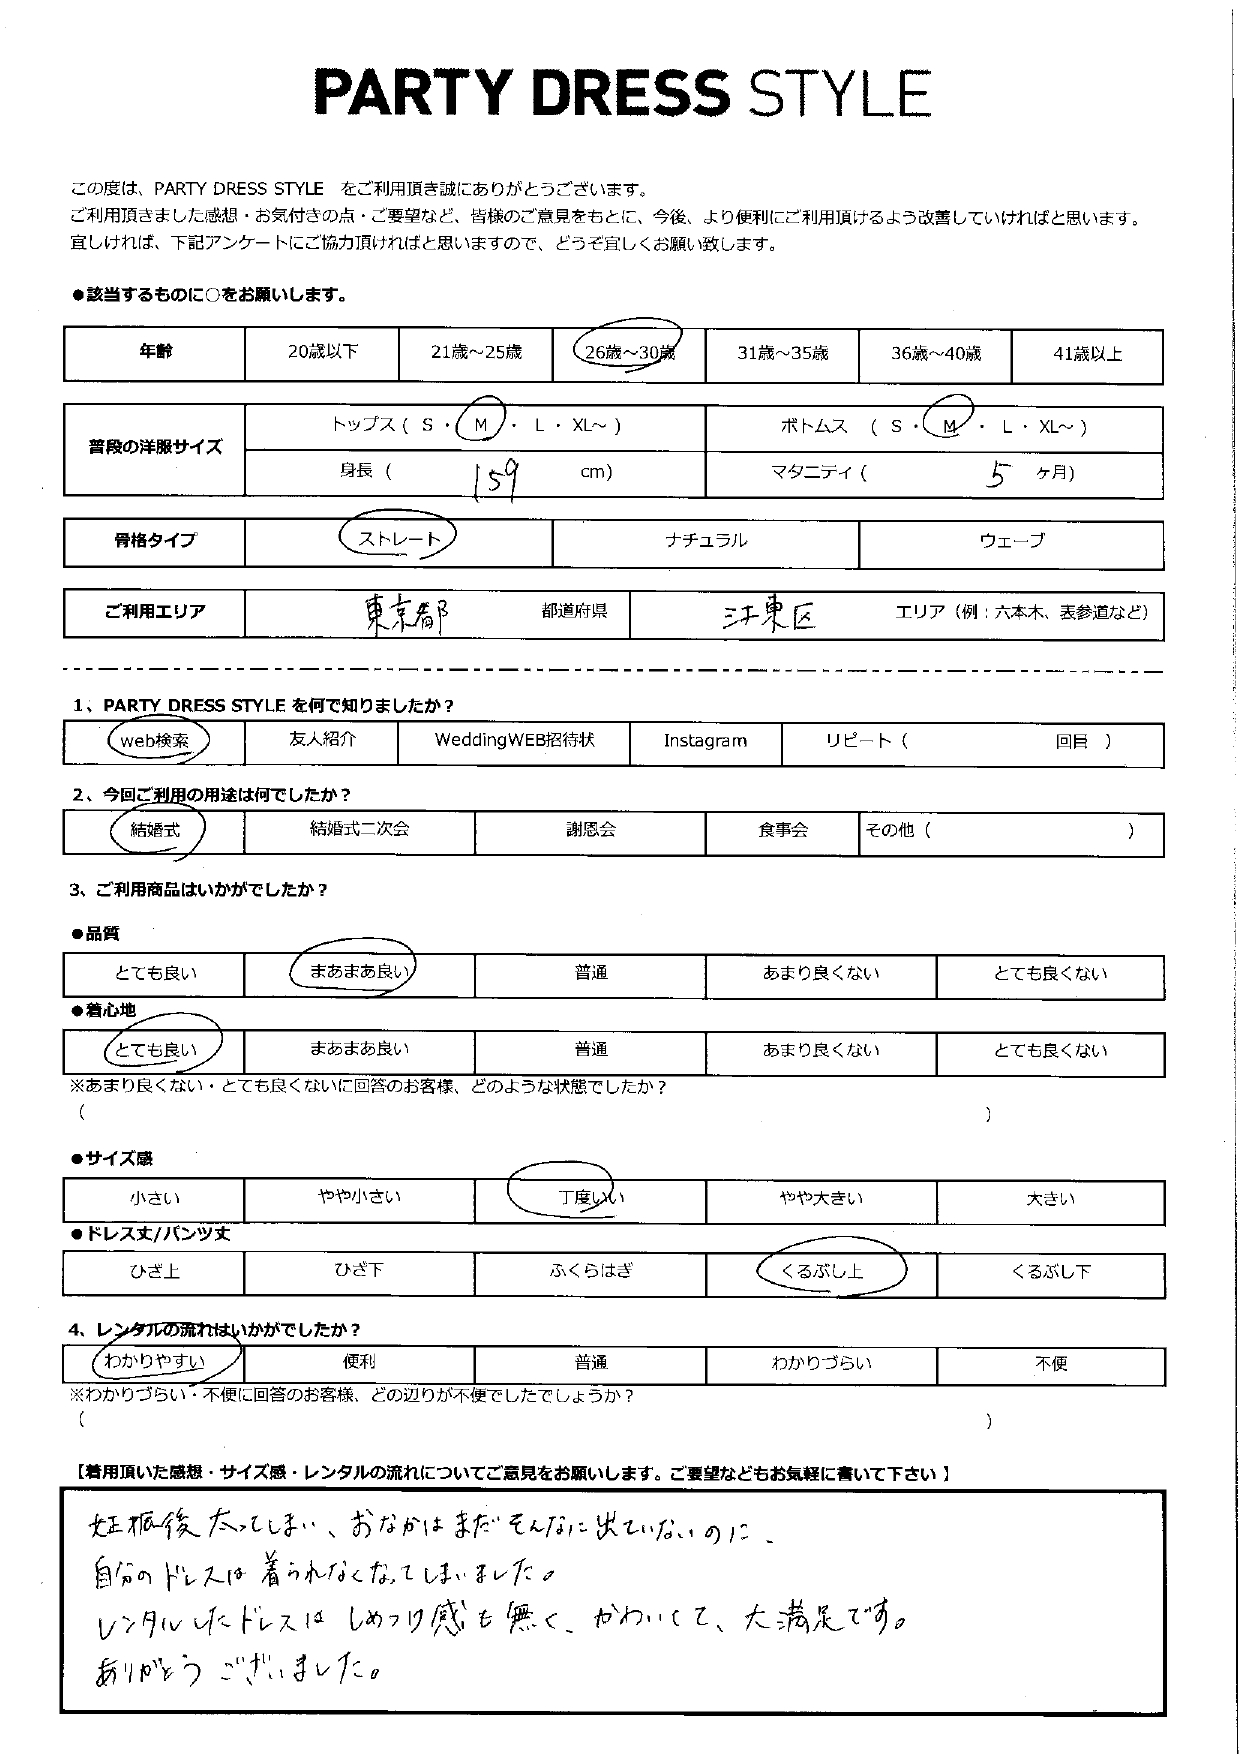 PARTY DRESS STYLE
この度は、PARTY DRESS STYLE をご利用頂き誠にありがとうございます。
ご利用頂きました感想・お気付きの点・ご要望など、皆様のご意見をもとに、今後、より便利にご利用頂けるよう改善していければと思います。
宜しければ、下記アンケートにご協力頂ければと思いますので、どうぞ宜しくお願い致します。
●該当するものに○をお願いします。
年齢 20歳以下 21歳～25歳 26歳～30歳 31歳～35歳 36歳～40歳 41歳以上
普段の洋服サイズ トップス ( S ・ M ・ L ・ XL～ ) ボトムス ( S ・ M ・ L ・ XL～ )
身長 ( 159 cm) マタニティ ( 5 ヶ月)
骨格タイプ ストレート ナチュラル ウェーブ
ご利用エリア 東京都 都道府県 江東区 エリア（例：六本木、表参道など）
1、PARTY DRESS STYLE を何で知りましたか？
web検索 友人紹介 WeddingWEB招待状 Instagram リピート ( 回目 )
2、今回ご利用の用途は何でしたか？
結婚式 結婚式二次会 謝恩会 食事会 その他 ( )
3、ご利用商品はいかがでしたか？
●品質
とても良い まあまあ良い 普通 あまり良くない とても良くない
●着心地
とても良い まあまあ良い 普通 あまり良くない とても良くない
※あまり良くない・とても良くないに回答のお客様、どのような状態でしたか？
( )
●サイズ感
小さい やや小さい 丁度いい やや大きい 大きい
●ドレス丈/パンツ丈
ひざ上 ひざ下 ふくらはぎ くるぶし上 くるぶし下
4、レンタルの流れはいかがでしたか？
わかりやすい 便利 普通 わかりづらい 不便
※わかりづらい・不便に回答のお客様、どの辺りが不便でしたでしょうか？
( )
【着用頂いた感想・サイズ感・レンタルの流れについてご意見をお願いします。ご要望などもお気軽に書いて下さい】
妊娠後太ってしまい、おなかはまだそんなに出ていないのに、
自分のドレスは着られなくなってしまいました。
レンタルしたドレスはしめつけ感も無く、かわいくて、大満足です。
ありがとうございました。